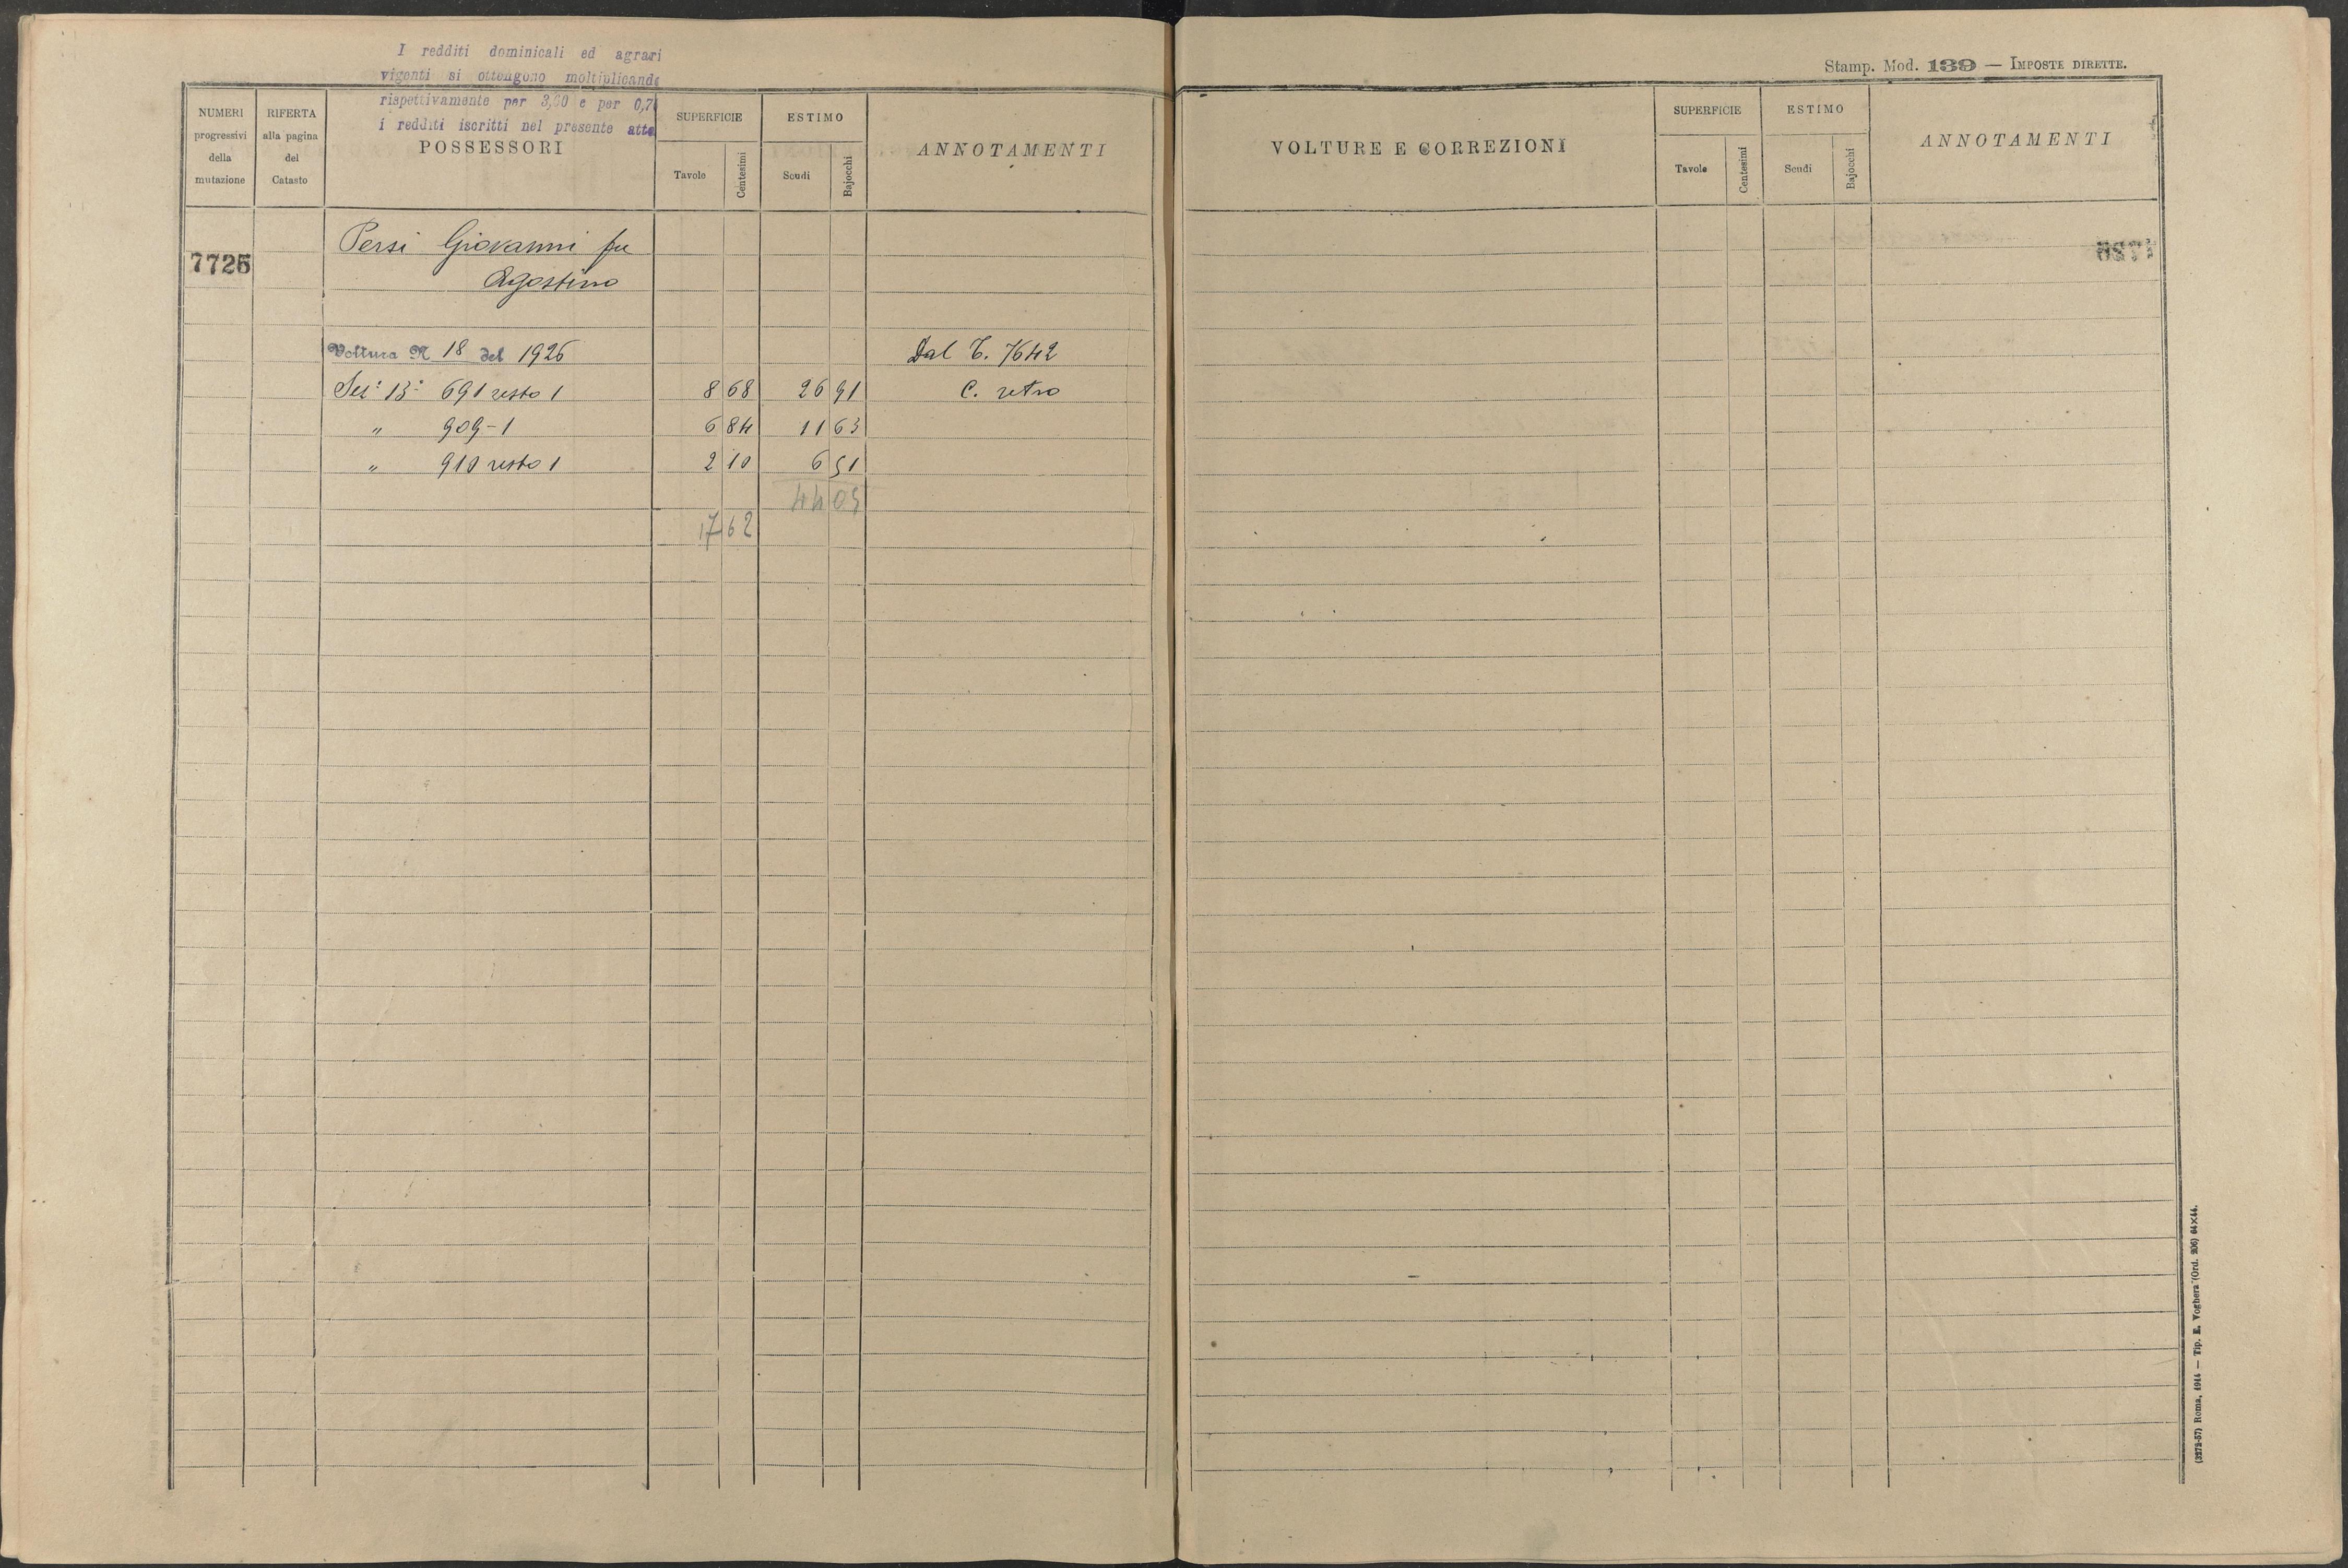 I redditi dominicali ed agrari
vigenti si ottengono moltiplicando
rispettivamente per 3,60 e per 0,7
i redditi iscritti nel presente atto
NUMERI
progressivi
della
mutazione
RIFERTA
alla pagina
del
Catasto
POSSESSORI
SUPERFICIE
Tavole
Centesimi
ESTIMO
Scudi
Bajocchi
ANNOTAMENTI
7725
Persi Giovanni fu
Agostino
Voltura N 18 del 1926
Dal T. 7642
Sez: 13: 691 resto 1 8 68 26 91 C. retro
" 909-1 6 84 11 63
" 910 resto 1 2 10 6 51
44 05
17 62
Stamp. Mod. 139 — IMPOSTE DIRETTE.
VOLTURE E CORREZIONI
SUPERFICIE
Tavole
Centesimi
ESTIMO
Scudi
Bajocchi
ANNOTAMENTI
(3272-57) Roma, 1914 — Tip. E. Voghera (Ord. 206) 64×44.